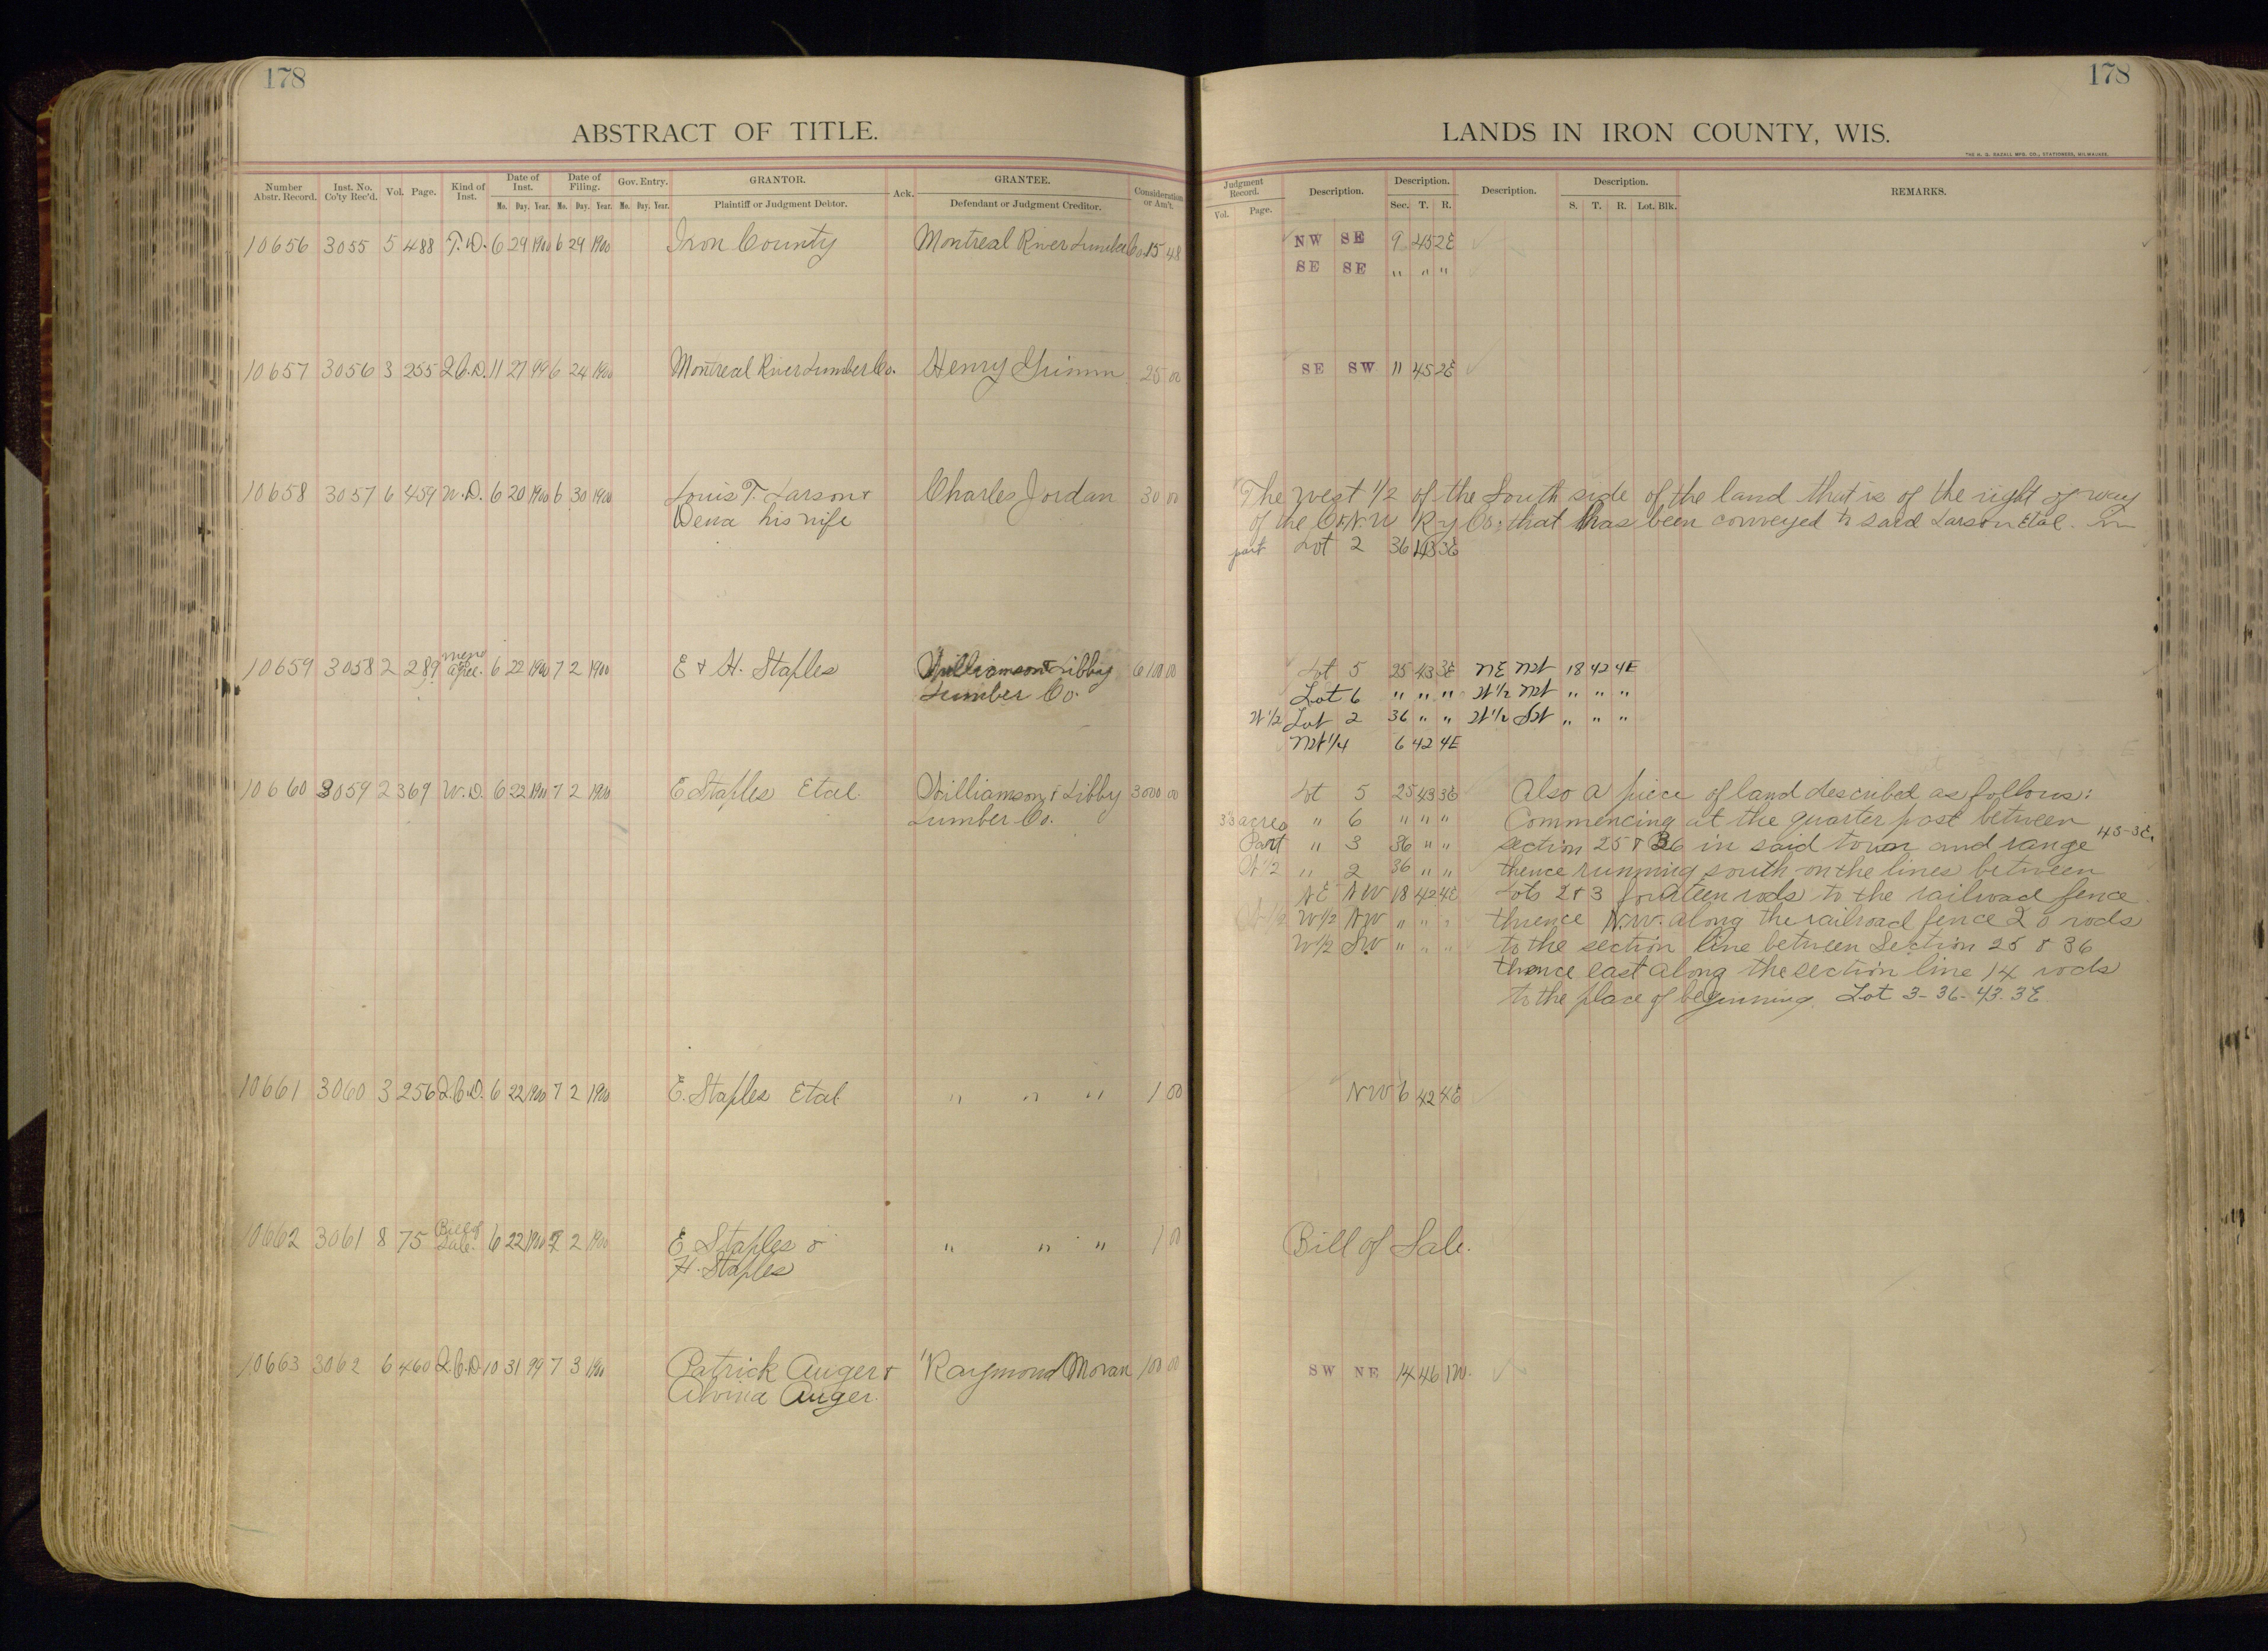 178
ABSTRACT OF TITLE.
Number Abstr. Record. Inst. No. Co'ty Rec'd. Vol. Page. Kind of Inst. Date of Inst. Date of Filing. Gov. Entry. GRANTOR. Ack. GRANTEE. Consideration or Am't.
Mo. Day. Year. Mo. Day. Year. Mo. Day. Year. Plaintiff or Judgment Debtor. Defendant or Judgment Creditor.
10656 3055 5 488 T.D. 6 29 1900 6 29 1900 Iron County Montreal River Lumber Co. 15 48
10657 3056 3 255 Q.C.D. 11 27 99 6 24 1900 Montreal River Lumber Co. Henry Grimm 25 00
10658 3057 6 459 W.D. 6 20 1900 6 30 1900 Louis T. Larson & Charles Jordan 30 00
his wife
10659 3058 2 289 agree. 6 22 1900 7 2 1900 E & H. Staples Williamson & Libbey 6100 00
Lumber Co.
10660 3059 2 369 W.D. 6 22 1900 7 2 1900 E Staples Etal. Williamson & Libby 3000 00
Lumber Co.
10661 3060 3 256 Q.C.D. 6 22 1900 7 2 1900 E. Staples Etal " " " 1 00
10662 3061 8 75 Bill of Sale. 6 22 1900 7 2 1900 E Staples & " " " 1 00
H. Staples
10663 3062 6 460 Q.C.D. 10 31 99 7 3 1900 Patrick Auger & Raymond Moran 100 00
Alvina Auger.
178
LANDS IN IRON COUNTY, WIS.
Judgment Record. Description. Description. Description. Description. REMARKS.
Vol. Page. Sec. T. R. S. T. R. Lot. Blk.
NW SE 9 45 2E
SE SE " " "
SE SW 11 45 2E
The West 1/2 of the South side of the land that is of the right of way
of the C & N.W Ry Co. that has been conveyed to said Larson Etal. In
part Lot 2 36 43 3E
Lot 5 25 43 3E NE NW 18 42 4E
Lot 6 " " " W 1/2 NW " " "
W 1/2 Lot 2 36 " " W 1/2 SW " " "
NW 1/4 6 42 4E
Lot 5 25 43 3E Also a piece of land described as follows:
33 acres " 6 " " " Commencing at the quarter post between
Part " 3 36 " " section 25 & 36 in said town and range 43-3E.
W 1/2 " 2 36 " " thence running south on the lines between
NE NW 18 42 4E Lots 2 & 3 fourteen rods to the railroad fence
W 1/2 NW " " " thence N.W. along the railroad fence 20 rods
W 1/2 SW " " " to the section line between Section 25 & 36
thence east along the section line 14 rods
to the place of beginning. Lot 3-36-43.3E
NW 6 42 4E
Bill of Sale.
SW NE 14 46 1W.